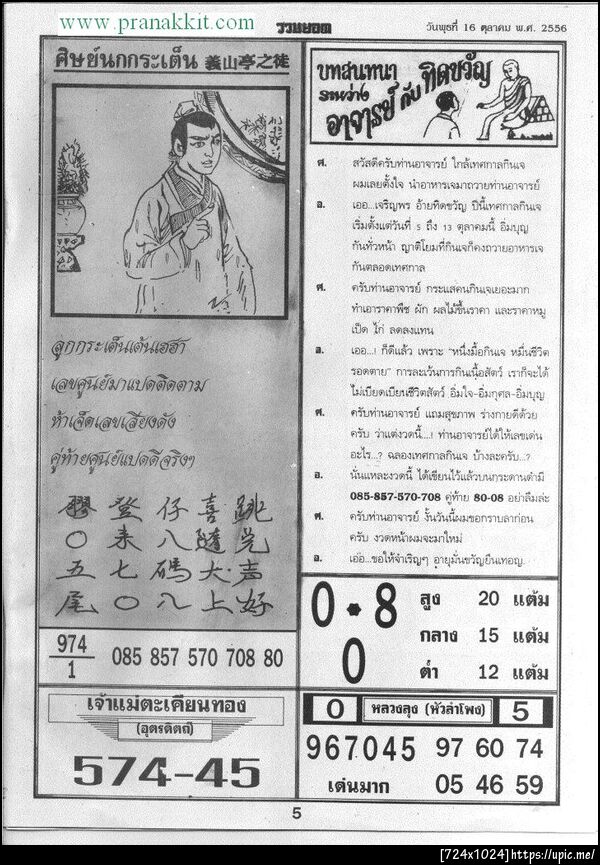 www.pranakkit.com
รวมยอด
วันพุธที่ 16 ตุลาคม พ.ศ. 2556
ศิษย์นกกระเต็น 義山亭之徒
ลูกกระเต็นเต้นเฮฮา
เลขศูนย์มาแปดติดตาม
ห้าเจ็ดเลขเสียงดัง
คู่ท้ายศูนย์แปดดีจริงๆ
登仔喜跳
〇來八隨
五七碼大声
尾〇八上好
974
1
085 857 570 708 80
เจ้าแม่ตะเคียนทอง
(อุตรดิตถ์)
574-45
บทสนทนา
ระหว่าง
อาจารย์ กับ ทิดขวัญ
ศ. สวัสดีครับท่านอาจารย์ ใกล้เทศกาลกินเจ
ผมเลยตั้งใจ นำอาหารเจมาถวายท่านอาจารย์
อ. เออ...เจริญพร อ้ายทิดขวัญ ปีนี้เทศกาลกินเจ
เริ่มตั้งแต่วันที่ 5 ถึง 13 ตุลาคมนี้ อิ่มบุญ
กันทั่วหน้า ญาติโยมที่กินเจก็คงถวายอาหารเจ
กันตลอดเทศกาล
ศ. ครับท่านอาจารย์ กระแสคนกินเจเยอะมาก
ทำเอาราคาพืช ผัก ผลไม้ขึ้นราคา และราคาหมู
เป็ด ไก่ ลดลงแทน
อ. เออ...! ก็ดีแล้ว เพราะ "หนึ่งมื้อกินเจ หมื่นชีวิต
รอดตาย" การละเว้นการกินเนื้อสัตว์ เราก็จะได้
ไม่เบียดเบียนชีวิตสัตว์ อิ่มใจ-อิ่มกุศล-อิ่มบุญ
ศ. ครับท่านอาจารย์ แถมสุขภาพ ร่างกายดีด้วย
ครับ ว่าแต่งวดนี้....! ท่านอาจารย์ได้ให้เลขเด่น
อะไร...? ฉลองเทศกาลกินเจ บ้างละครับ...?
อ. นั่นแหละงวดนี้ ได้เขียนไว้แล้วบนกระดานดำมี
085-857-570-708 คู่ท้าย 80-08 อย่าลืมล่ะ
ศ. ครับท่านอาจารย์ งั้นวันนี้ผมขอกราบลาก่อน
ครับ งวดหน้าผมจะมาใหม่
อ. เอ๊อ...ขอให้จำเริญๆ อายุมั่นขวัญยืนเทอญ.
0*8
0
สูง 20 แต้ม
กลาง 15 แต้ม
ต่ำ 12 แต้ม
0 หลวงลุง (หัวลำโพง) 5
967045 97 60 74
เด่นมาก 05 46 59
5
[724x1024]https://upic.me/